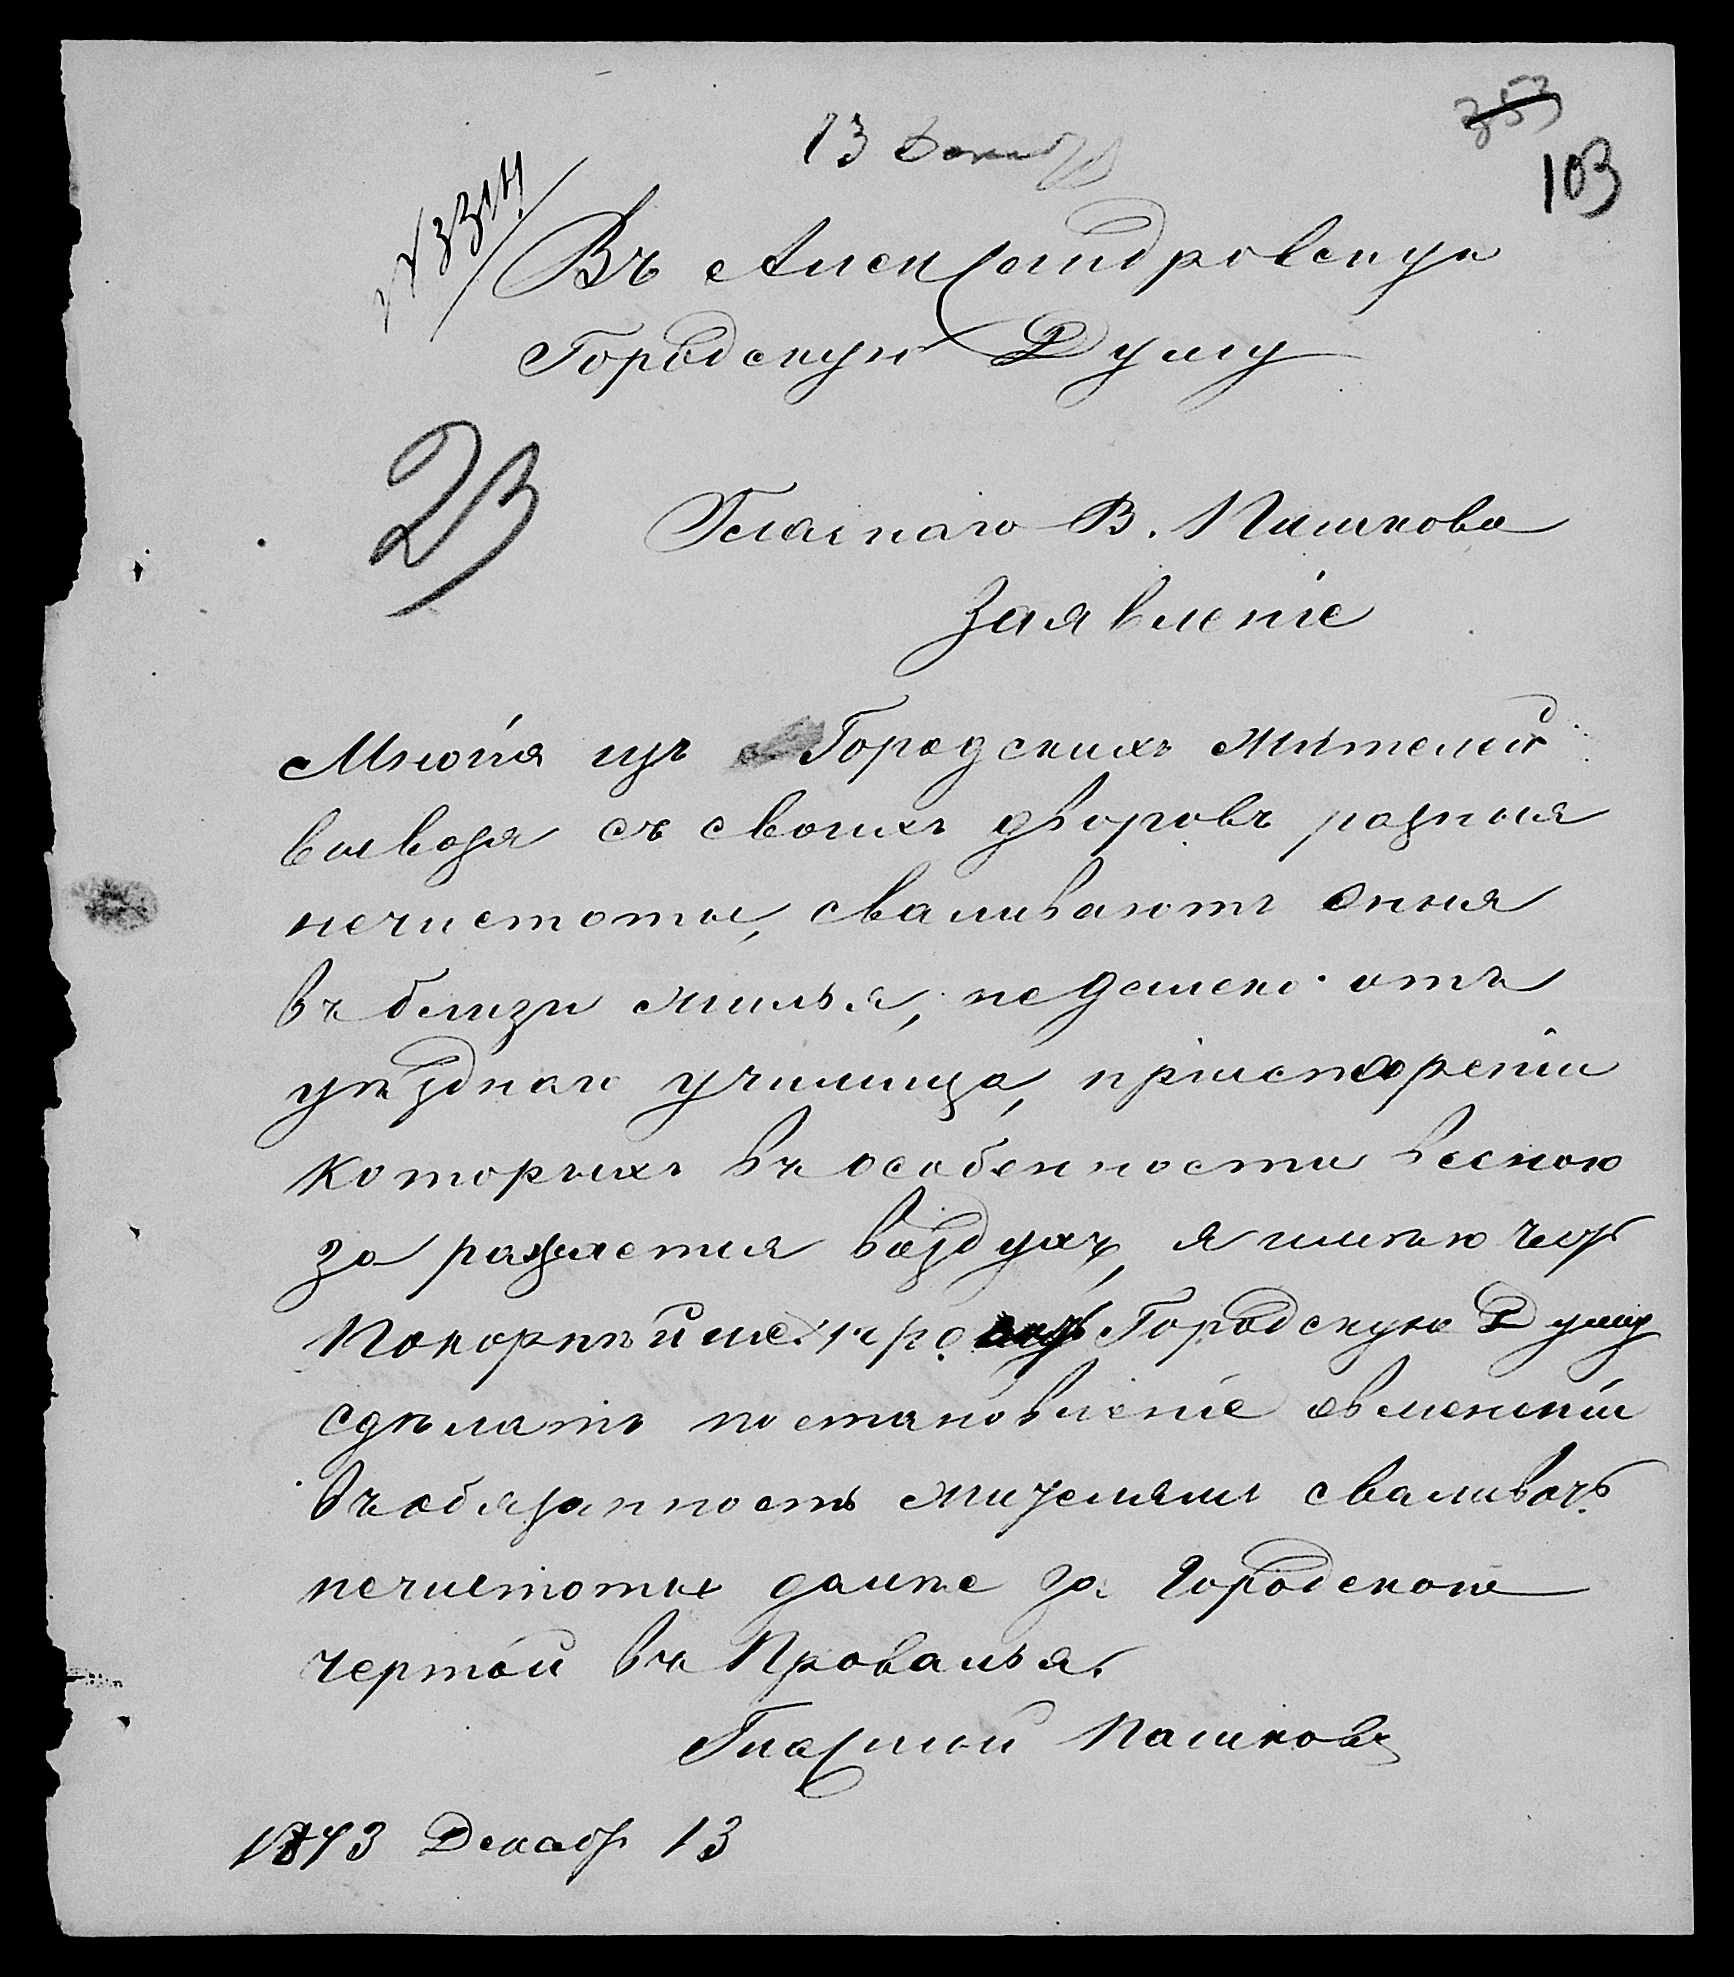 353
103
13 Декабр
№ 3314
Въ Александровскую
Городскую Думу
23
Гласнаго В. Пашкова
Заявленіе
Многія изъ Городскихъ жителей
вывозя съ своихъ дворовъ разныя
нечистоты, сваливаютъ оныя
въ близи жилья, не далеко отъ
уѣзднаго училища,
которыхъ въ особенности весною
за ражается воздухъ, я имѣю честь
Покорнѣйше просить Городскую Думу
сдѣлать постановленіе
въ обязанность жителями сваливать
нечистоты далѣе за Городскою
чертой въ Провалья.
Гласный Пашковъ
1873 Декабр 13